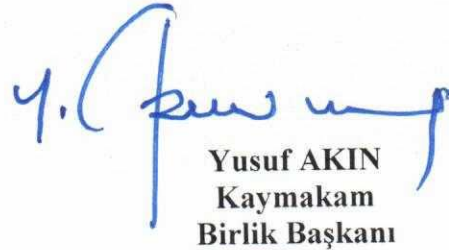 Yusuf AKIN
Kaymakam
Birlik Başkanı